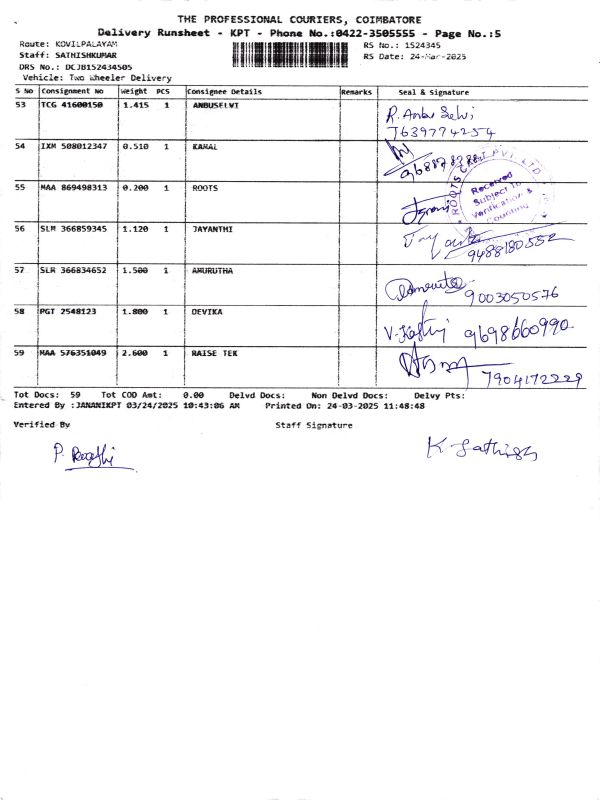 THE PROFESSIONAL COURIERS, COIMBATORE
Delivery Runsheet - KPT - Phone No.:0422-3505555 - Page No.:5
Route: KOVILPALAYAM RS No.: 1524345
Staff: SATHISHKUMAR RS Date: 24-Mar-2025
DRS No.: DCJB152434505
Vehicle: Two Wheeler Delivery
S No Consignment No Weight PCS Consignee Details Remarks Seal & Signature
53 TCG 41600150 1.415 1 ANBUSELVI R. Anbu Selvi
7639774254
54 IXM 508012347 0.510 1 KAMAL
55 MAA 869498313 0.200 1 ROOTS
ROOTS CAST PVT. LTD
Received
Subject to
Verification &
Counting
56 SLM 366859345 1.120 1 JAYANTHI
9488180552
57 SLM 366834652 1.500 1 AMURUTHA
9003050576
58 PGT 2548123 1.800 1 DEVIKA 9698660990
59 MAA 576351049 2.600 1 RAISE TEK
7904172229
Tot Docs: 59 Tot COD Amt: 0.00 Delvd Docs: Non Delvd Docs: Delvy Pts:
Entered By :JANANIKPT 03/24/2025 10:43:06 AM Printed On: 24-03-2025 11:48:48
Verified By Staff Signature
K. Sathish